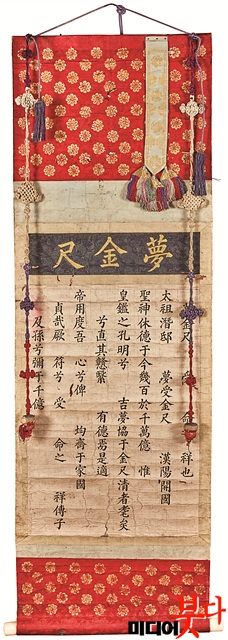 夢金尺
金尺 受 命 祥也
太祖潛邸 夢受金尺 漢陽開國
聖神休德于今幾百於千萬億 惟
皇鑑之孔明兮 吉夢協于金尺清者耄矣
兮直其戇緊 有德焉是適
帝用度吾 心兮俾 均齊于家國
貞哉厥 符兮 受 命之 祥傳子
及孫兮彌于千億
미디어 붓다